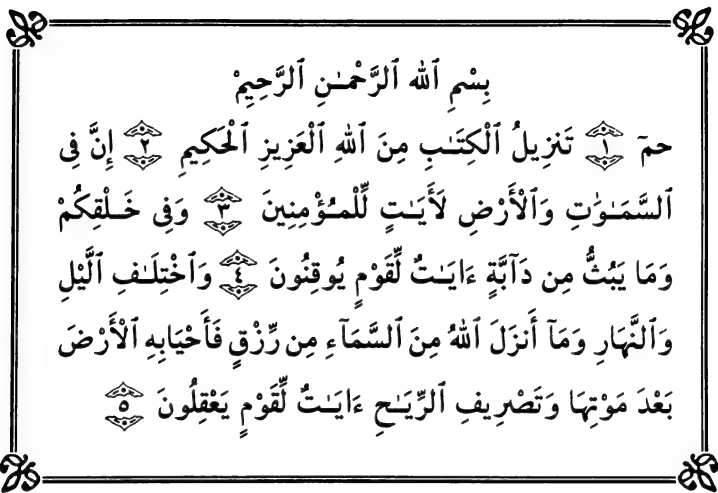 بِسْمِ ٱللهِ ٱلرَّحْمَـٰنِ ٱلرَّحِيمِ
حمٓ ١ تَنزِيلُ ٱلْكِتَـٰبِ مِنَ ٱللهِ ٱلْعَزِيزِ ٱلْحَكِيمِ ٢ إِنَّ فِى
ٱلسَّمَـٰوَٰتِ وَٱلْأَرْضِ لَأَيَـٰتٍ لِّلْمُؤْمِنِينَ ٣ وَفِى خَلْقِكُمْ
وَمَا يَبُثُّ مِن دَآبَّةٍ ءَايَـٰتٌ لِّقَوْمٍ يُوقِنُونَ ٤ وَٱخْتِلَـٰفِ ٱلَّيْلِ
وَٱلنَّهَارِ وَمَآ أَنزَلَ ٱللهُ مِنَ ٱلسَّمَآءِ مِن رِّزْقٍ فَأَحْيَابِهِ ٱلْأَرْضَ
بَعْدَ مَوْتِهَا وَتَصْرِيفِ ٱلرِّيَـٰحِ ءَايَـٰتٌ لِّقَوْمٍ يَعْقِلُونَ ٥